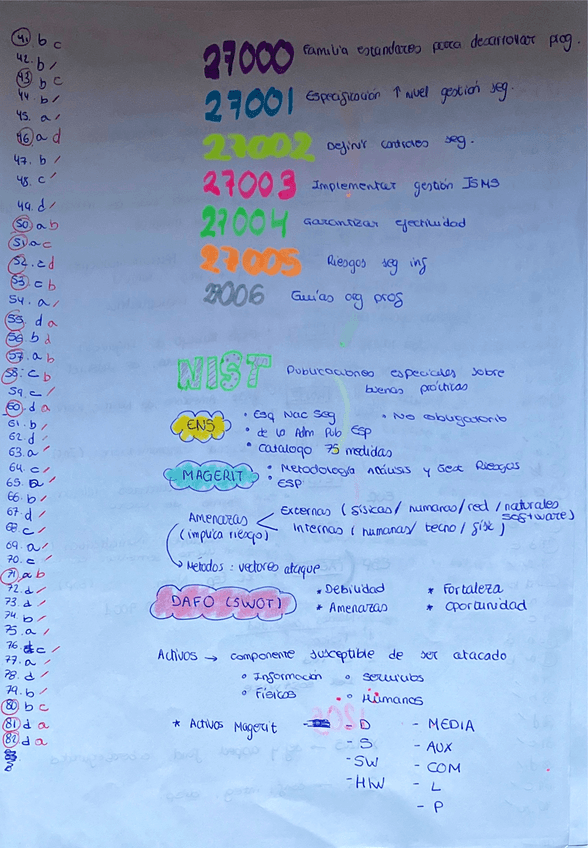 41. b c
42. b
43. b c
44. b
45. a
46. a d
47. b
48. c
49. d
50. a b
51. a c
52. c d
53. c b
54. a
55. d a
56. b d
57. a b
58. c b
59. c
60. d a
61. b
62. d
63. a
64. c
65. a
66. b
67. d
68. c
69. a
70. c
71. a b
72. d
73. d
74. b
75. a
76. c
77. a
78. d
79. b
80. b c
81. d a
82. d a
27000 Familia estandares para desarrollar prog.
27001 Especificación ↑ nivel gestión seg.
27002 Definir controles seg.
27003 Implementar gestión ISMS
27004 Garantizar efectividad
27005 Riesgos seg inf
27006 Guías org pros
NIST Publicaciones especiales sobre
buenas prácticas
ENS • Esq Nac Seg • No obligatorio
• de la Adm Pub Esp
• catalogo 75 medidas
MAGERIT • Metodología análisis y Gest Riesgos
• ESP
Amenazas (implica riesgo)
Externas (físicas/ humanas/red/ naturales
software)
Internas (humanas/ tecno/ físi)
→ Métodos: vectores ataque
DAFO (SWOT) * Debilidad * Fortaleza
* Amenazas * Oportunidad
Activos → componente susceptible de ser atacado
° Información ° Servicios
° Físicos ° Humanos
* Activos Magerit - D - MEDIA
- S - AUX
- SW - COM
- HW - L
- P